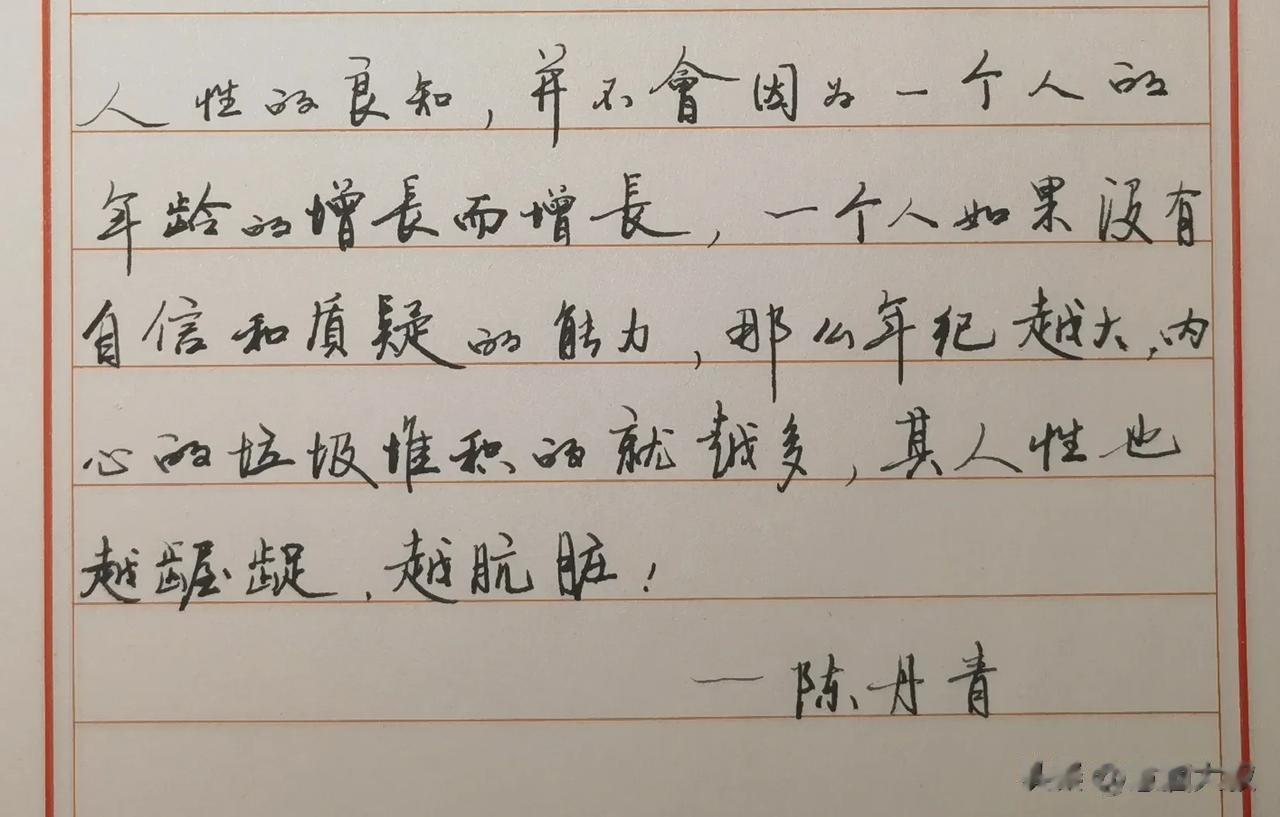 人性的良知,并不會因为一个人的
年龄的增長而增長,一个人如果没有
自信和质疑的能力,那么年纪越大,内
心的垃圾堆积的就越多,其人性也
越龌龊,越肮脏!
——陈丹青